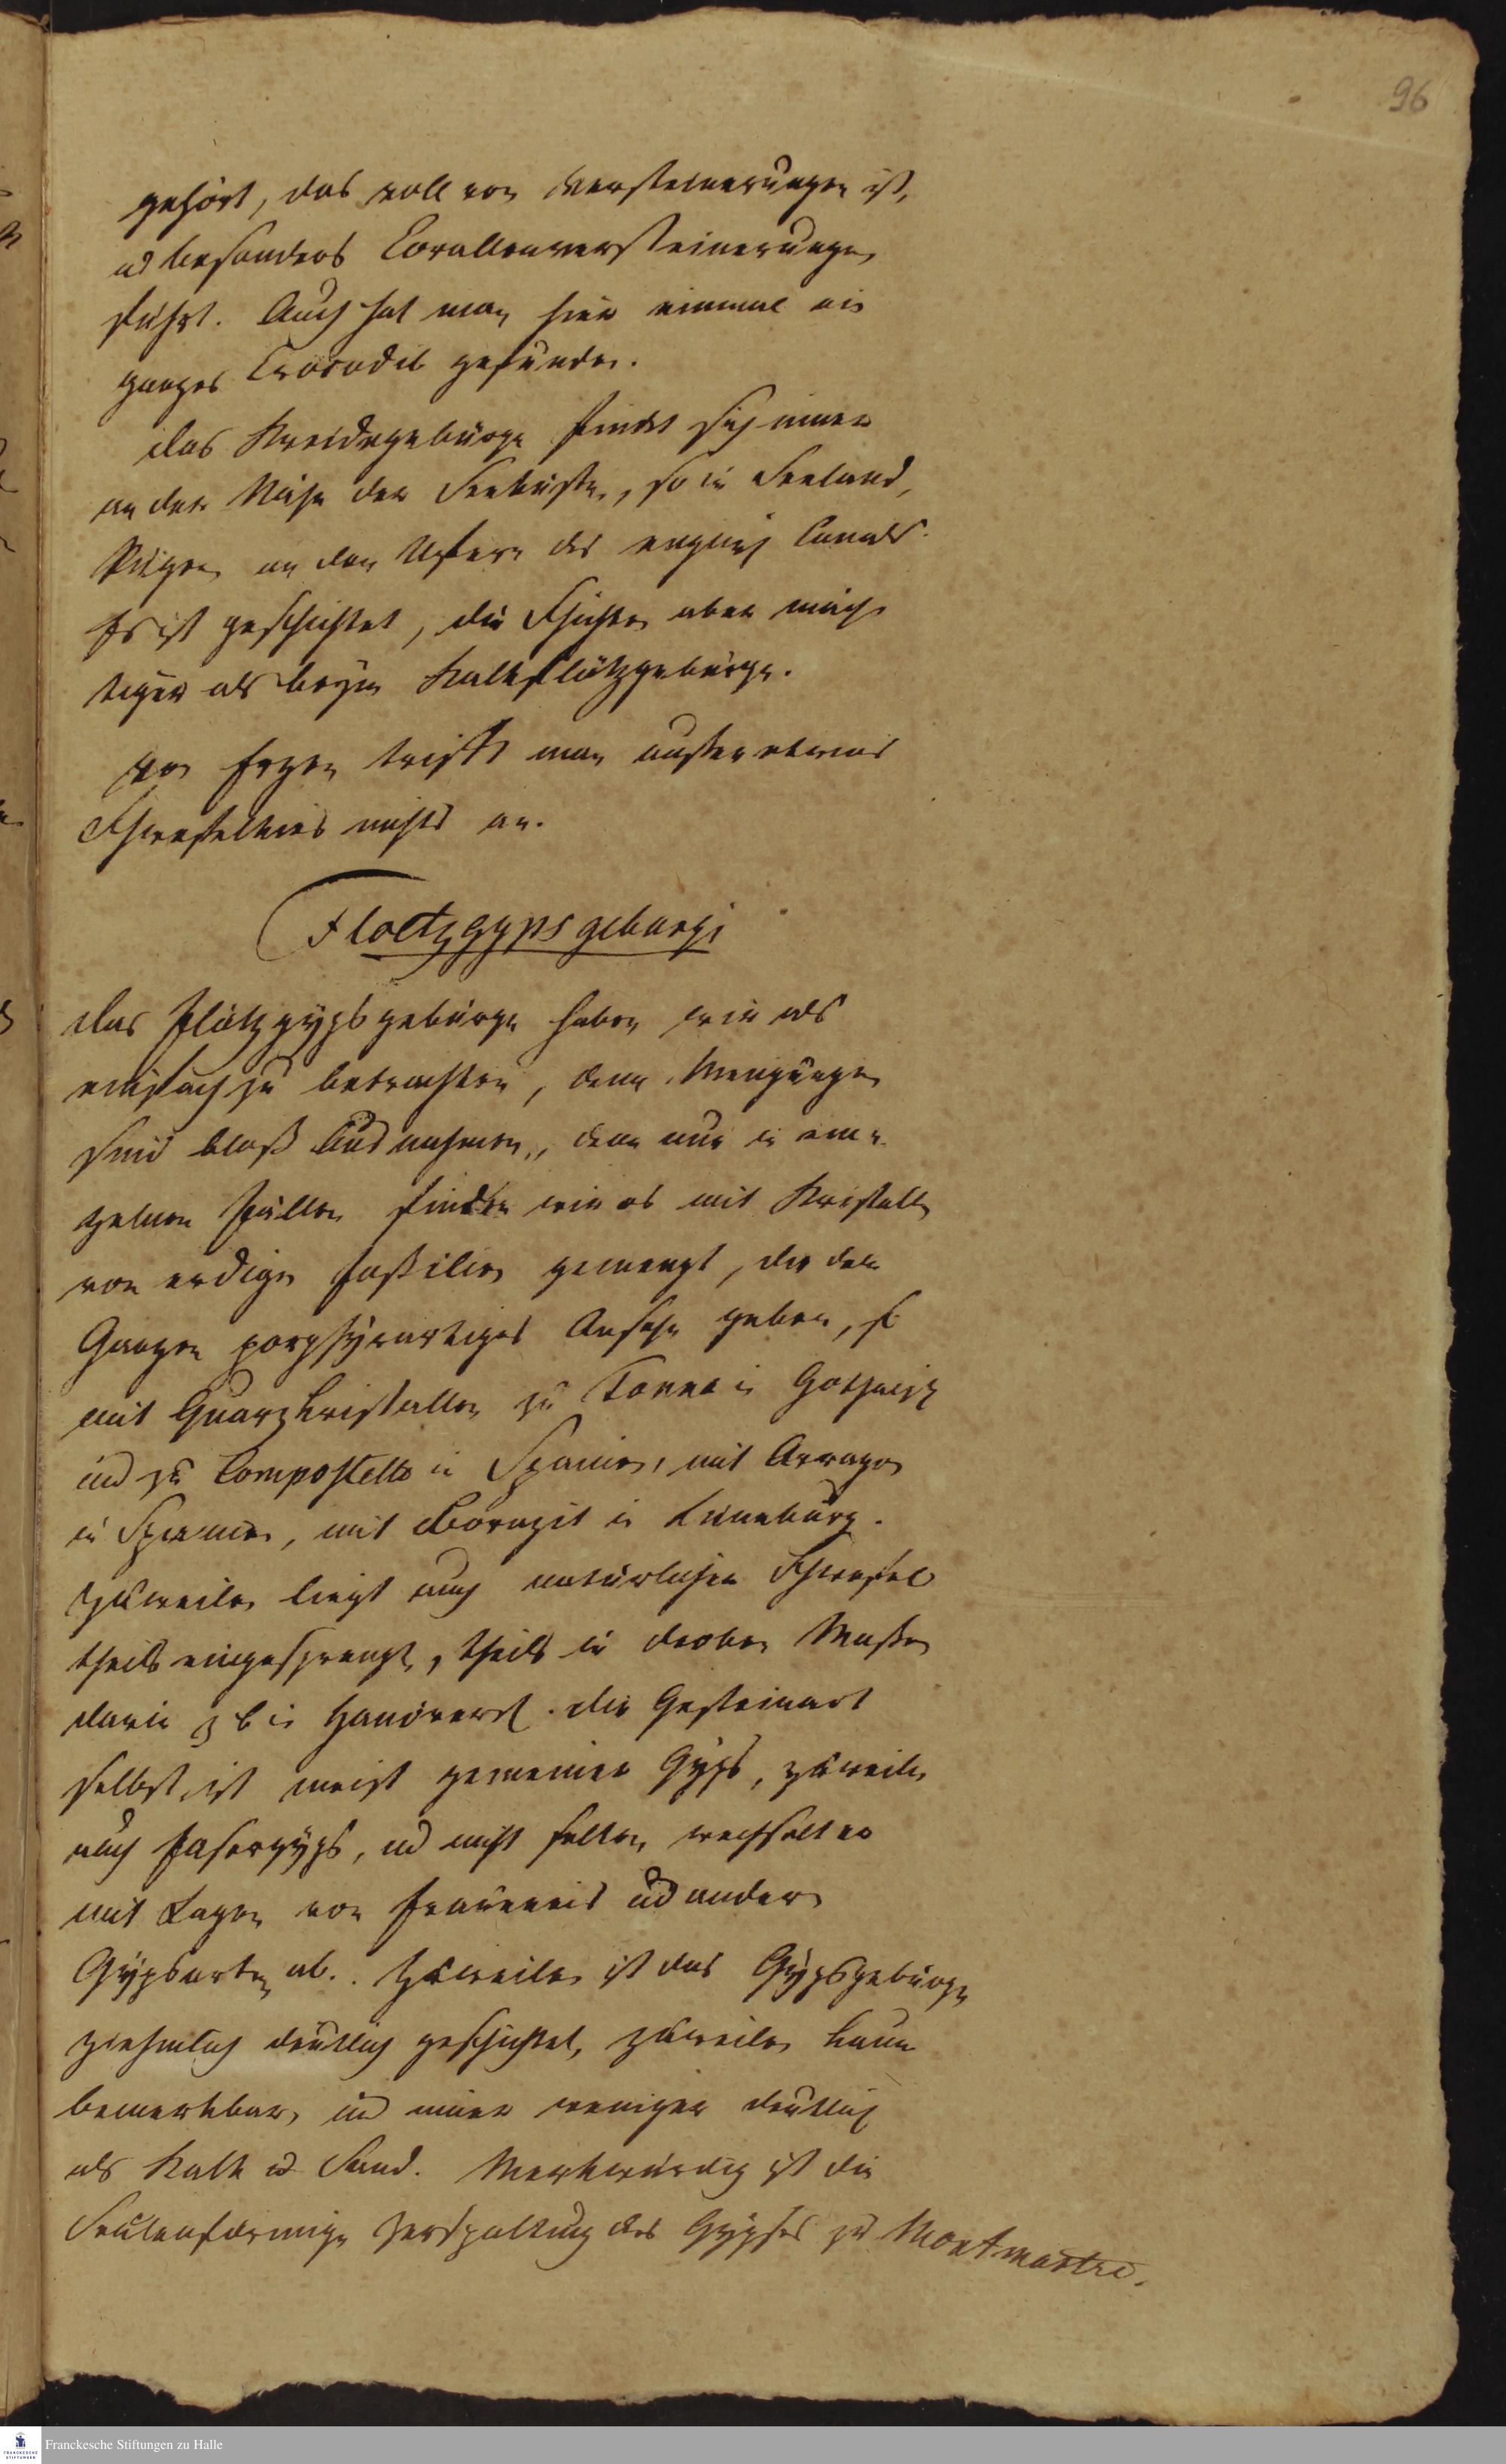 96
gehört, das voll von Versteinerungen ist,
ud besonders Corallenversteinerungen
führt. Auch hat man hier einmal ein
ganzes Crocodil gefunden.
das Kreidegebürge findet sich immer
an der Nähe der Seeküste, so in Seeland,
Rügen an den Ufern des englisch Canals.
Es ist geschichtet, die Schichten aber mäch
tiger als beym Kalkflötzgebürge.
von Erzen trifft man außer etwas
Schwefelkies nichts an.
Floetzgypsgeburge
das Flötzgypsgebürge haben wir als
einfach zu betrachten, denn Mengungen
sind bloß Ausnahmen, denn nur in ein
zelnen Fällen finden wir es mit Kristallen
von erdigen Foßilien gemengt, die dem
Ganzen porphyrartiges Ansehn geben, so
mit Quarzkristallen zu Tonna in Gothaisch
ud zu Compostella in Spanien, mit Arragon
in Spanien, mit Borazit in Lüneburg.
Zuweilen liegt auch natürlicher Schwefel
theils eingesprengt, theils in derben Maßen
darin z b in Hanöversch. die Gesteinart
selbst ist meist gemeiner Gyps, zuweilen
auch Fasergyps, ud nicht selten wechselt er
mit Lagen von Fraueneis ud andern
Gypsarten ab. Zuweilen ist das Gypsgebürge
ziehmlich deutlich geschichtet, zuweilen kaum
bemerkbar, ud immer weniger deutlich
als Kalk u Sand. Merkwürdig ist die
Seulenförmige Zerspaltung des Gypses zu Montmartre.
Franckesche Stiftungen zu Halle